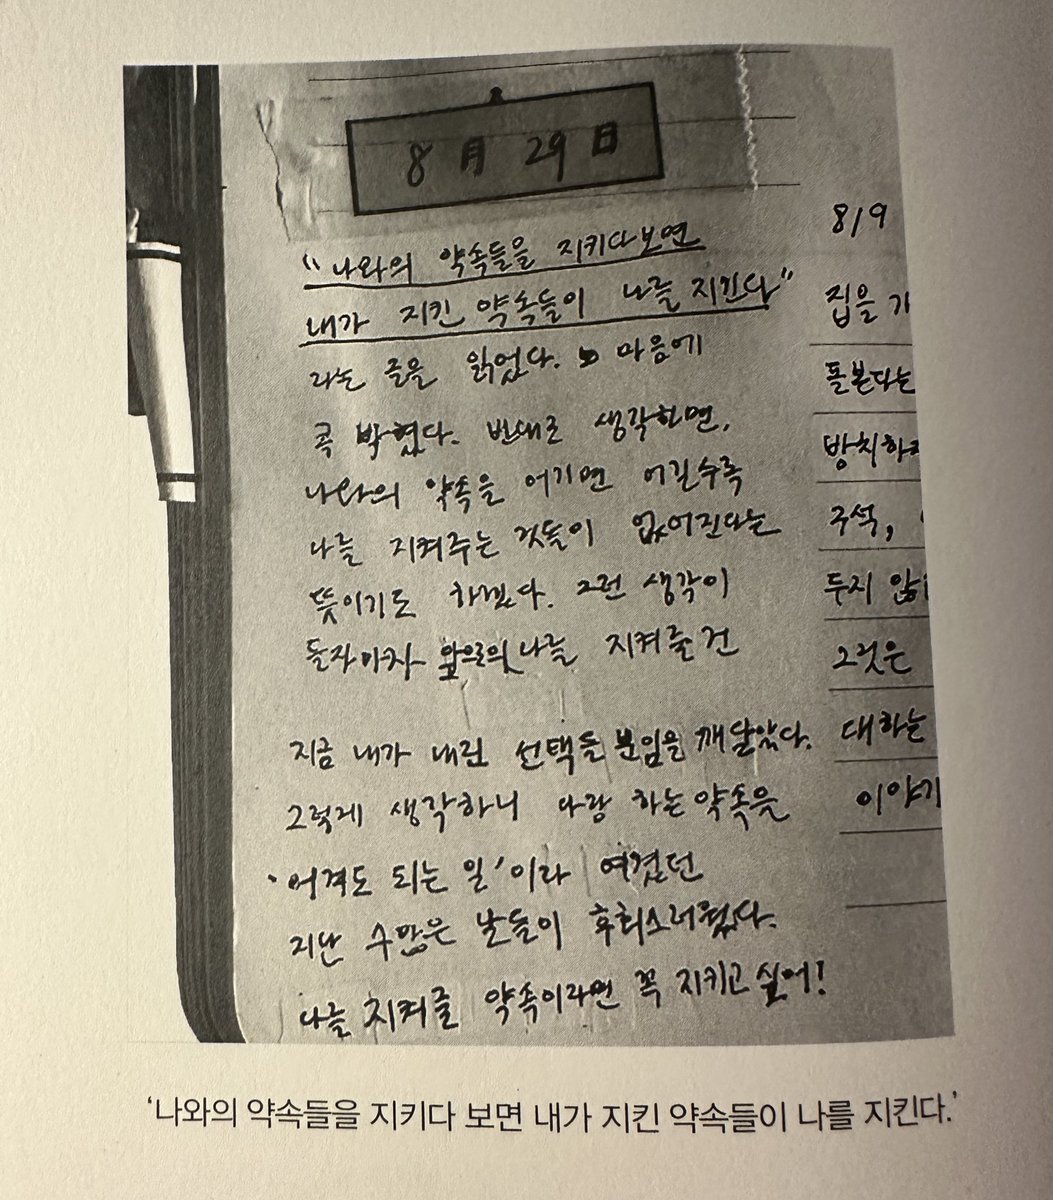 8月 29日
“나와의 약속들을 지키다보면
내가 지킨 약속들이 나를 지킨다”
라는 글을 읽었다. 마음에
콕 박혔다. 반대로 생각하면,
나와의 약속을 어기면 어길수록
나를 지켜주는 것들이 없어진다는
뜻이기도 하겠다. 그런 생각이
들자마자 앞으로의 나를 지켜줄 건
지금 내가 내린 선택들 뿐임을 깨달았다.
그렇게 생각하니 나랑 하는 약속을
'어겨도 되는 일'이라 여겼던
지난 수많은 날들이 후회스러웠다.
나를 지켜줄 약속이라면 꼭 지키고 싶어!
8/9
집을 가
돌본다는
방치하
구석,
두지 않
그것은
대하는
이야기
‘나와의 약속들을 지키다 보면 내가 지킨 약속들이 나를 지킨다.’